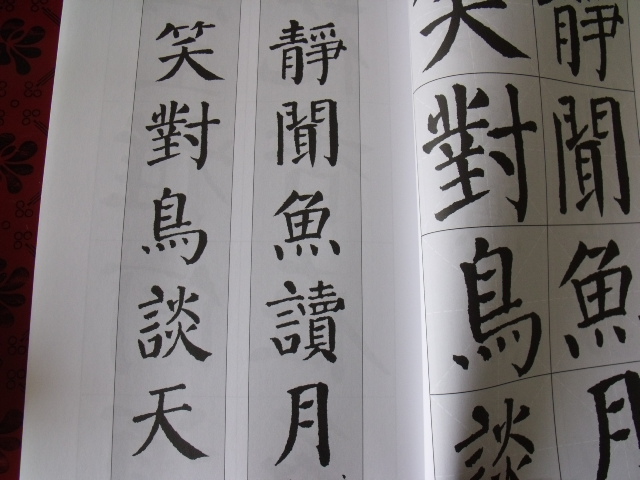 靜聞魚月
笑對鳥談
靜聞魚讀月
笑對鳥談天